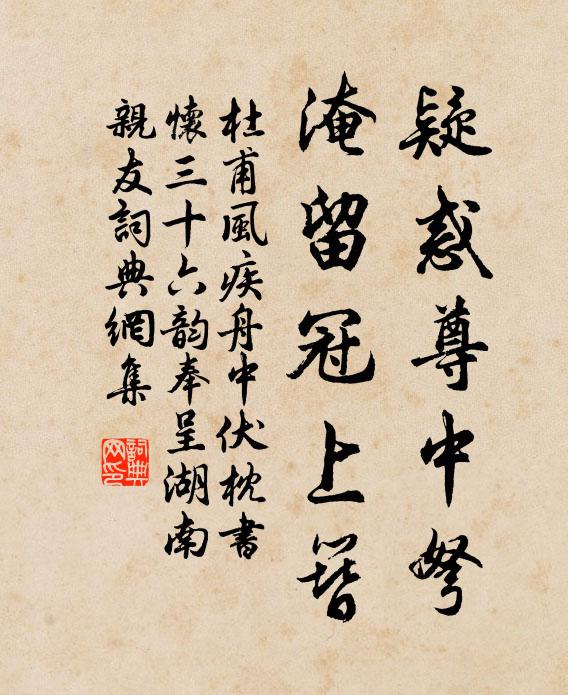 疑惑尊中弩
淹留冠上簪
杜甫風疾舟中伏枕書
懷三十六韵奉呈湖南
親友詞典網集
詞典网印